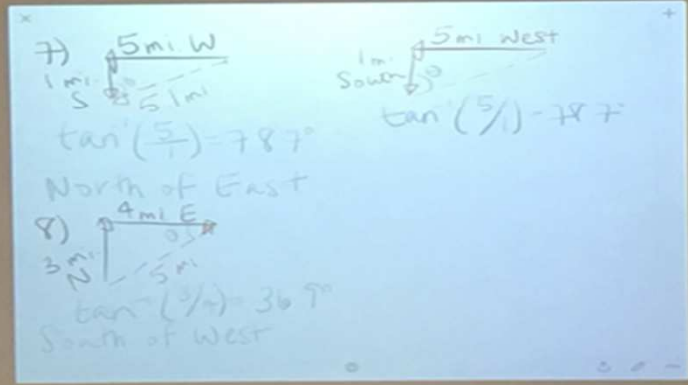 7)
5mi W
1 mi
S
5 1mi
tan⁻¹(5/1)=78 7°
North of East
5 mi West
1 mi
South
tan⁻¹(5/1)-78 7°
8)
4mi E
3 mi
N
5 mi
tan⁻¹(3/4)-36 9°
South of West